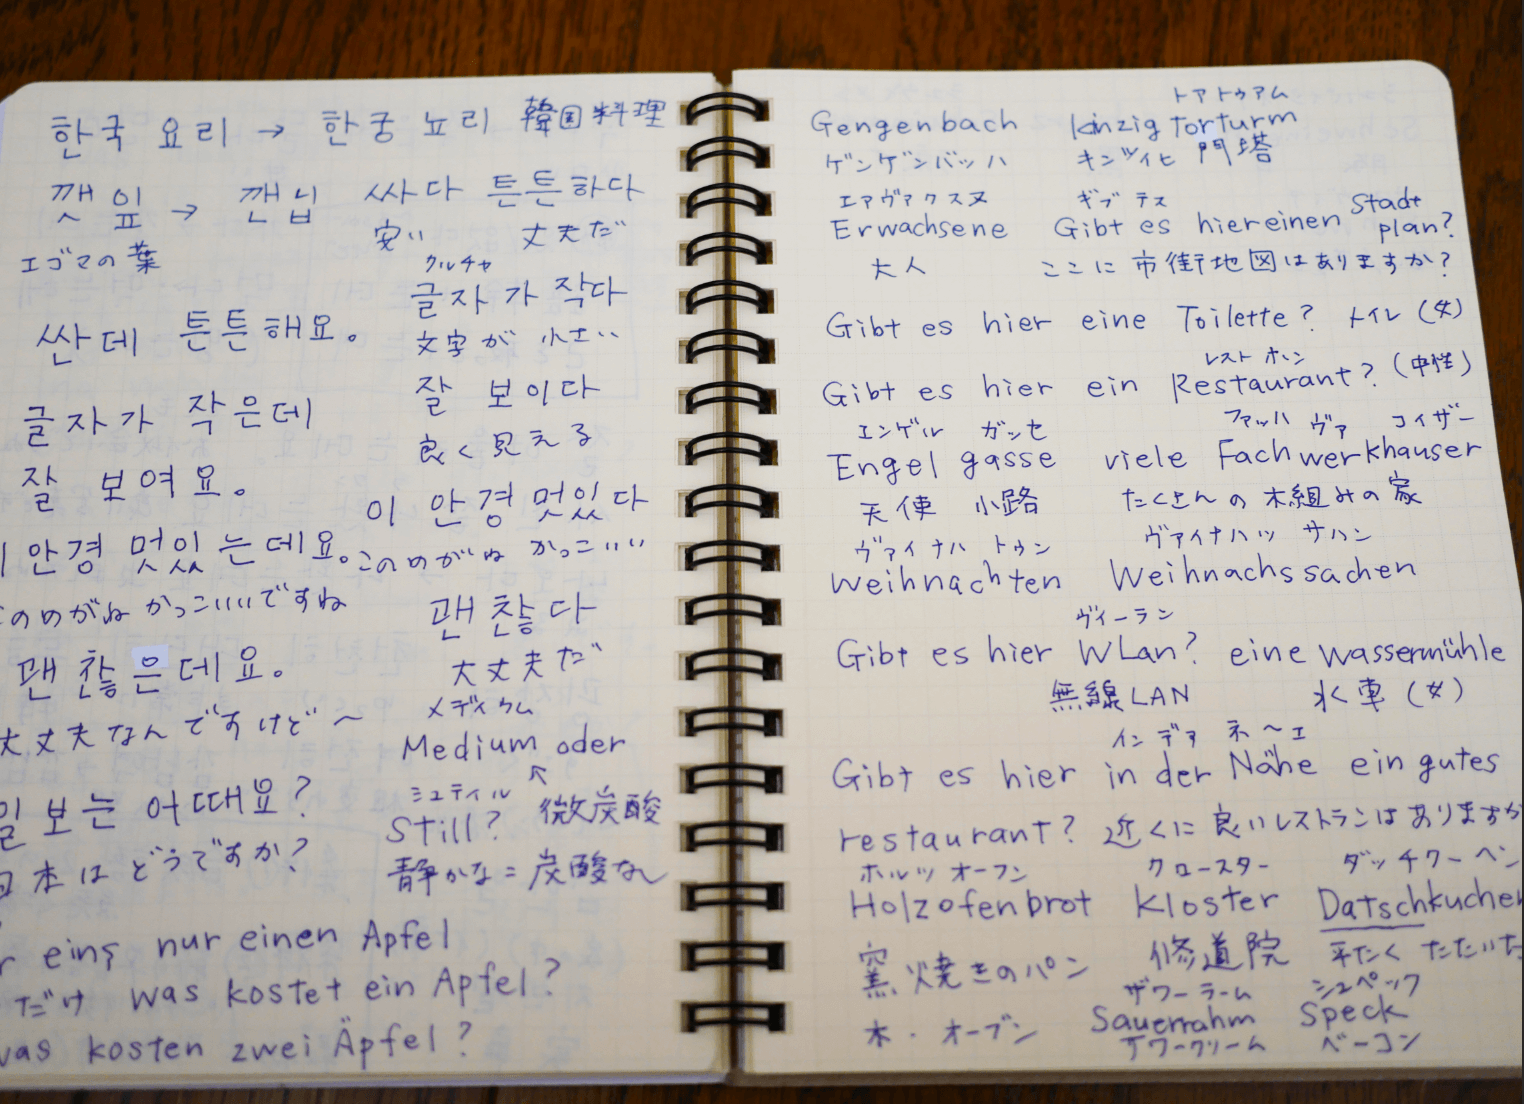 한국 요리 → 한궁 뇨리 韓国料理
깻잎 → 깬닙 싸다 튼튼하다
エゴマの葉 安い 丈夫だ
クルチャ
글자가 작다
싼데 튼튼해요。
文字が 小さい
글자가 작은데
잘 보이다
良く見える
잘 보여요。
이 안경 멋있다
안경 멋있는데요。
このめがね かっこいい
のめがね かっこいいですね
괜찮다
괜찮은데요。
大丈夫だ
大丈夫なんですけど〜
メディウム
Medium oder
일보는 어때요?
ミュティル
Still? 微炭酸
本はどうですか?
静かな=炭酸なし
eins nur einen Apfel
だけ was kostet ein Apfel?
was kosten zwei Äpfel?
トアトゥアム
Gengenbach Kinzig Torturm
ゲンゲンバッハ キンツィヒ 門塔
エアヴァクスヌ ギブテス
Erwachsene Gibt es hier einen Stadt
plan?
大人 ここに市街地図はありますか?
Gibt es hier eine Toilette? トイレ(女)
レストホン
Gibt es hier ein Restaurant? (中性)
エンゲル ガッセ ファッハ ヴァ コイザー
Engel gasse viele Fachwerkhauser
天使 小路 たくさんの木組みの家
ヴァイナハトゥン ヴァイナハッサハン
Weihnachten Weihnachssachen
ヴィーラン
Gibt es hier WLan? eine Wassermühle
無線LAN 水車(女)
インデア ネーエ
Gibt es hier in der Nähe ein gutes
restaurant? 近くに良いレストランはありますか
ホルツオーフン クロースター ダッチクーヘン
Holzofenbrot Kloster Datschkuchen
窯焼きのパン 修道院 平たくたたいた
ザワーラーム シュペック
木・オーブン Sauerrahm Speck
サワークリーム ベーコン